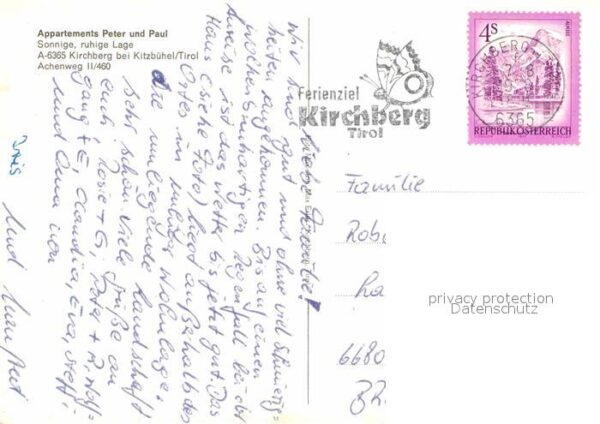 Appartements Peter und Paul
Sonnige, ruhige Lage
A-6365 Kirchberg bei Kitzbühel/Tirol
Achenweg II/460
Liebe Familie!
Wir sind gut und ohne viel Schwierig-
keiten angekommen. Bis auf einen
wochen
Regenfall bei der
Anreise ist das Wetter bis jetzt gut. Das
Haus (siehe Foto) liegt außerhalb des
Ortes in Wohnlage.
Die umliegende Landschaft
sehr schön. Viele Grüße an
Euch, Rosie + G, Peter + R, Wolf-
gang + E, Claudia, Eva, Steffi,
und Oma von
und
Ferienziel
Kirchberg
Tirol
4S
KIRCHBERG
6365
REPUBLIK ÖSTERREICH
Familie
Rob
Ra
6680
privacy protection
Datenschutz